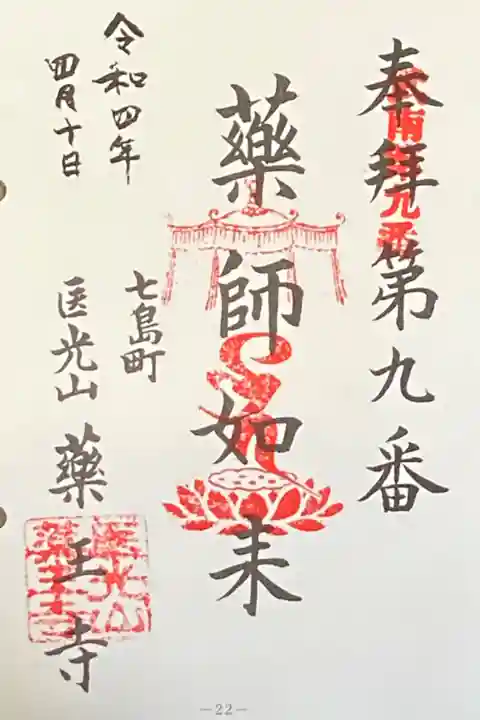 奉拝第九番
薬師如来
七島町
医光山
薬王寺
令和四年
四月十日
-22-